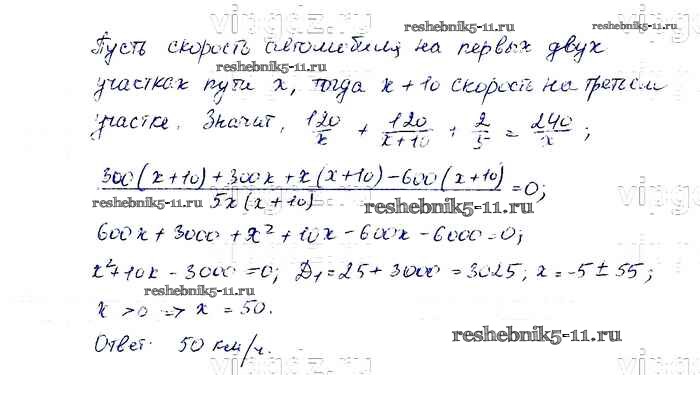 Пусть скорость автомобиля на первых двух
участках пути x, тогда x + 10 скорость на третьем
участке. Значит, 120/x + 120/(x+10) + 2/5 = 240/x ;
(300(x+10) + 300x + x(x+10) - 600(x+10))/(5x(x+10)) = 0;
600x + 3000 + x² + 10x - 600x - 6000 = 0;
x² + 10x - 3000 = 0; D₁ = 25 + 3000 = 3025; x = -5 ± 55;
x > 0 => x = 50.
Ответ: 50 км/ч.
reshebnik5-11.ru
reshebnik5-11.ru
reshebnik5-11.ru
reshebnik5-11.ru
reshebnik5-11.ru
reshebnik5-11.ru
reshebnik5-11.ru